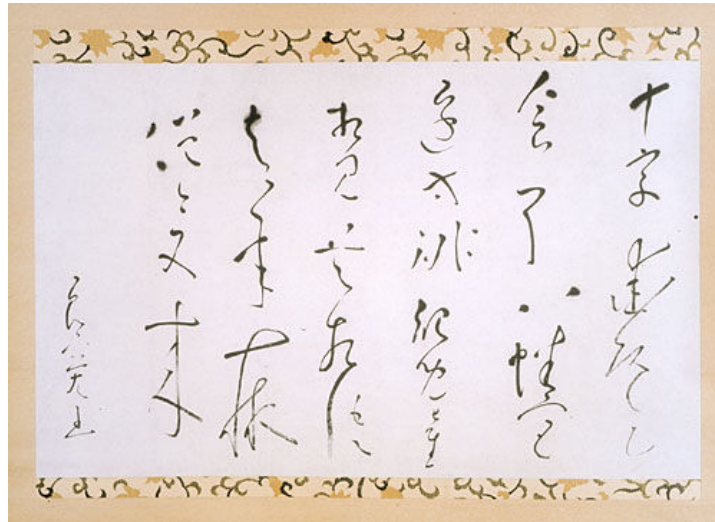 十字街頭乞
食了八幡宮
邊方徘徊兒童
相見共相語
去年癡
僧今又来
良寛書